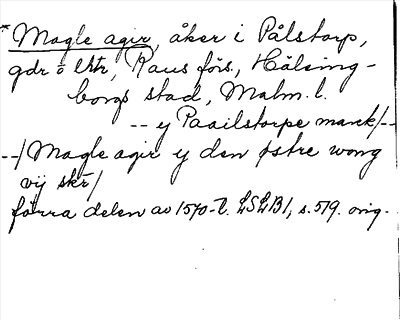 * Magle agir, åker i Pålstorp,
gdr o lhtr, Raus förs., Hälsing-
borgs stad, Malm. l.
-- y Paailstorpe marck/--
--/ Magle agir y den østre wong
vij skr/
förra delen av 1570-t. LSLB1, s. 519. orig.